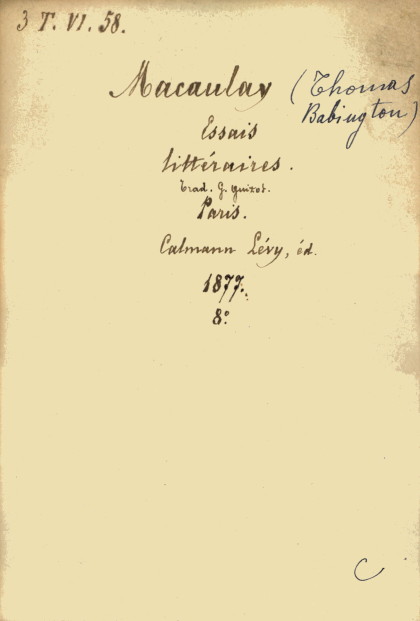 3 T. VI. 58.
Macaulay (Thomas
Babington)
Essais
littéraires.
Trad. G. Guizot.
Paris.
Calmann Lévy, éd.
1877.
8º
C